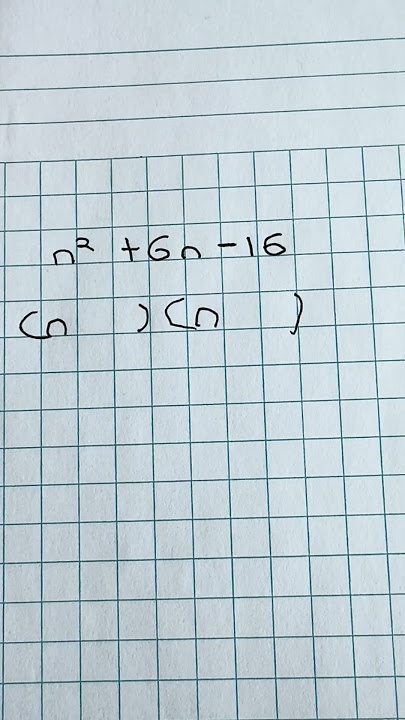 n² + 6n - 16
(n    ) (n    )